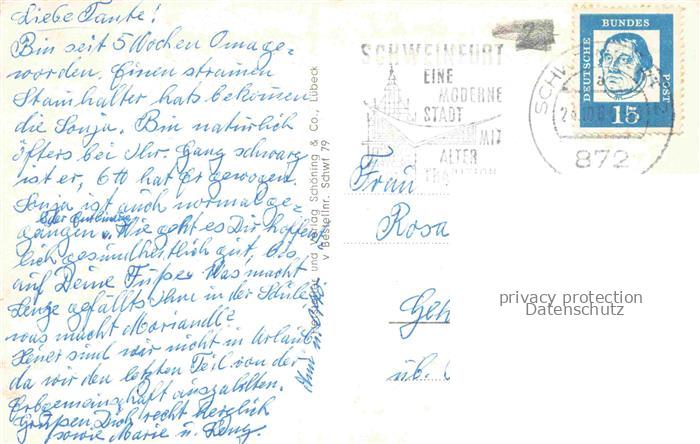 Liebe Tante!
Bin seit 5 Wochen Omage-
worden. Einen stramen
Stamhalter hats bekomen
die Sonja. Bin natürlich
öfters bei Ihr. Ganz schwarz
ist er, 6 ℔ hat Er gewogen.
Sonja ist auch normal ge-
der Entbindung
gangen. Wie geht es Dir hoffent-
lich gesundheitlich gut, bis
auf Deine Füße. Was macht
gefällts Ihm in der Schule
was macht Mariandl?
sind wir nicht in Urlaub
da wir den letzten Teil von der
Erbgemeinschaft auszahlten.
Grüßen Dich recht herzlich
sowie Marie u.
Verlag Schöning & Co., Lübeck
Bestellnr. Schwf 79
SCHWEINFURT
EINE
MODERNE
STADT
MIT
ALTER
TRADITION
SCHW
a
872
DEUTSCHE BUNDES POST
15
Frau
Rosa
üb.
privacy protection
Datenschutz